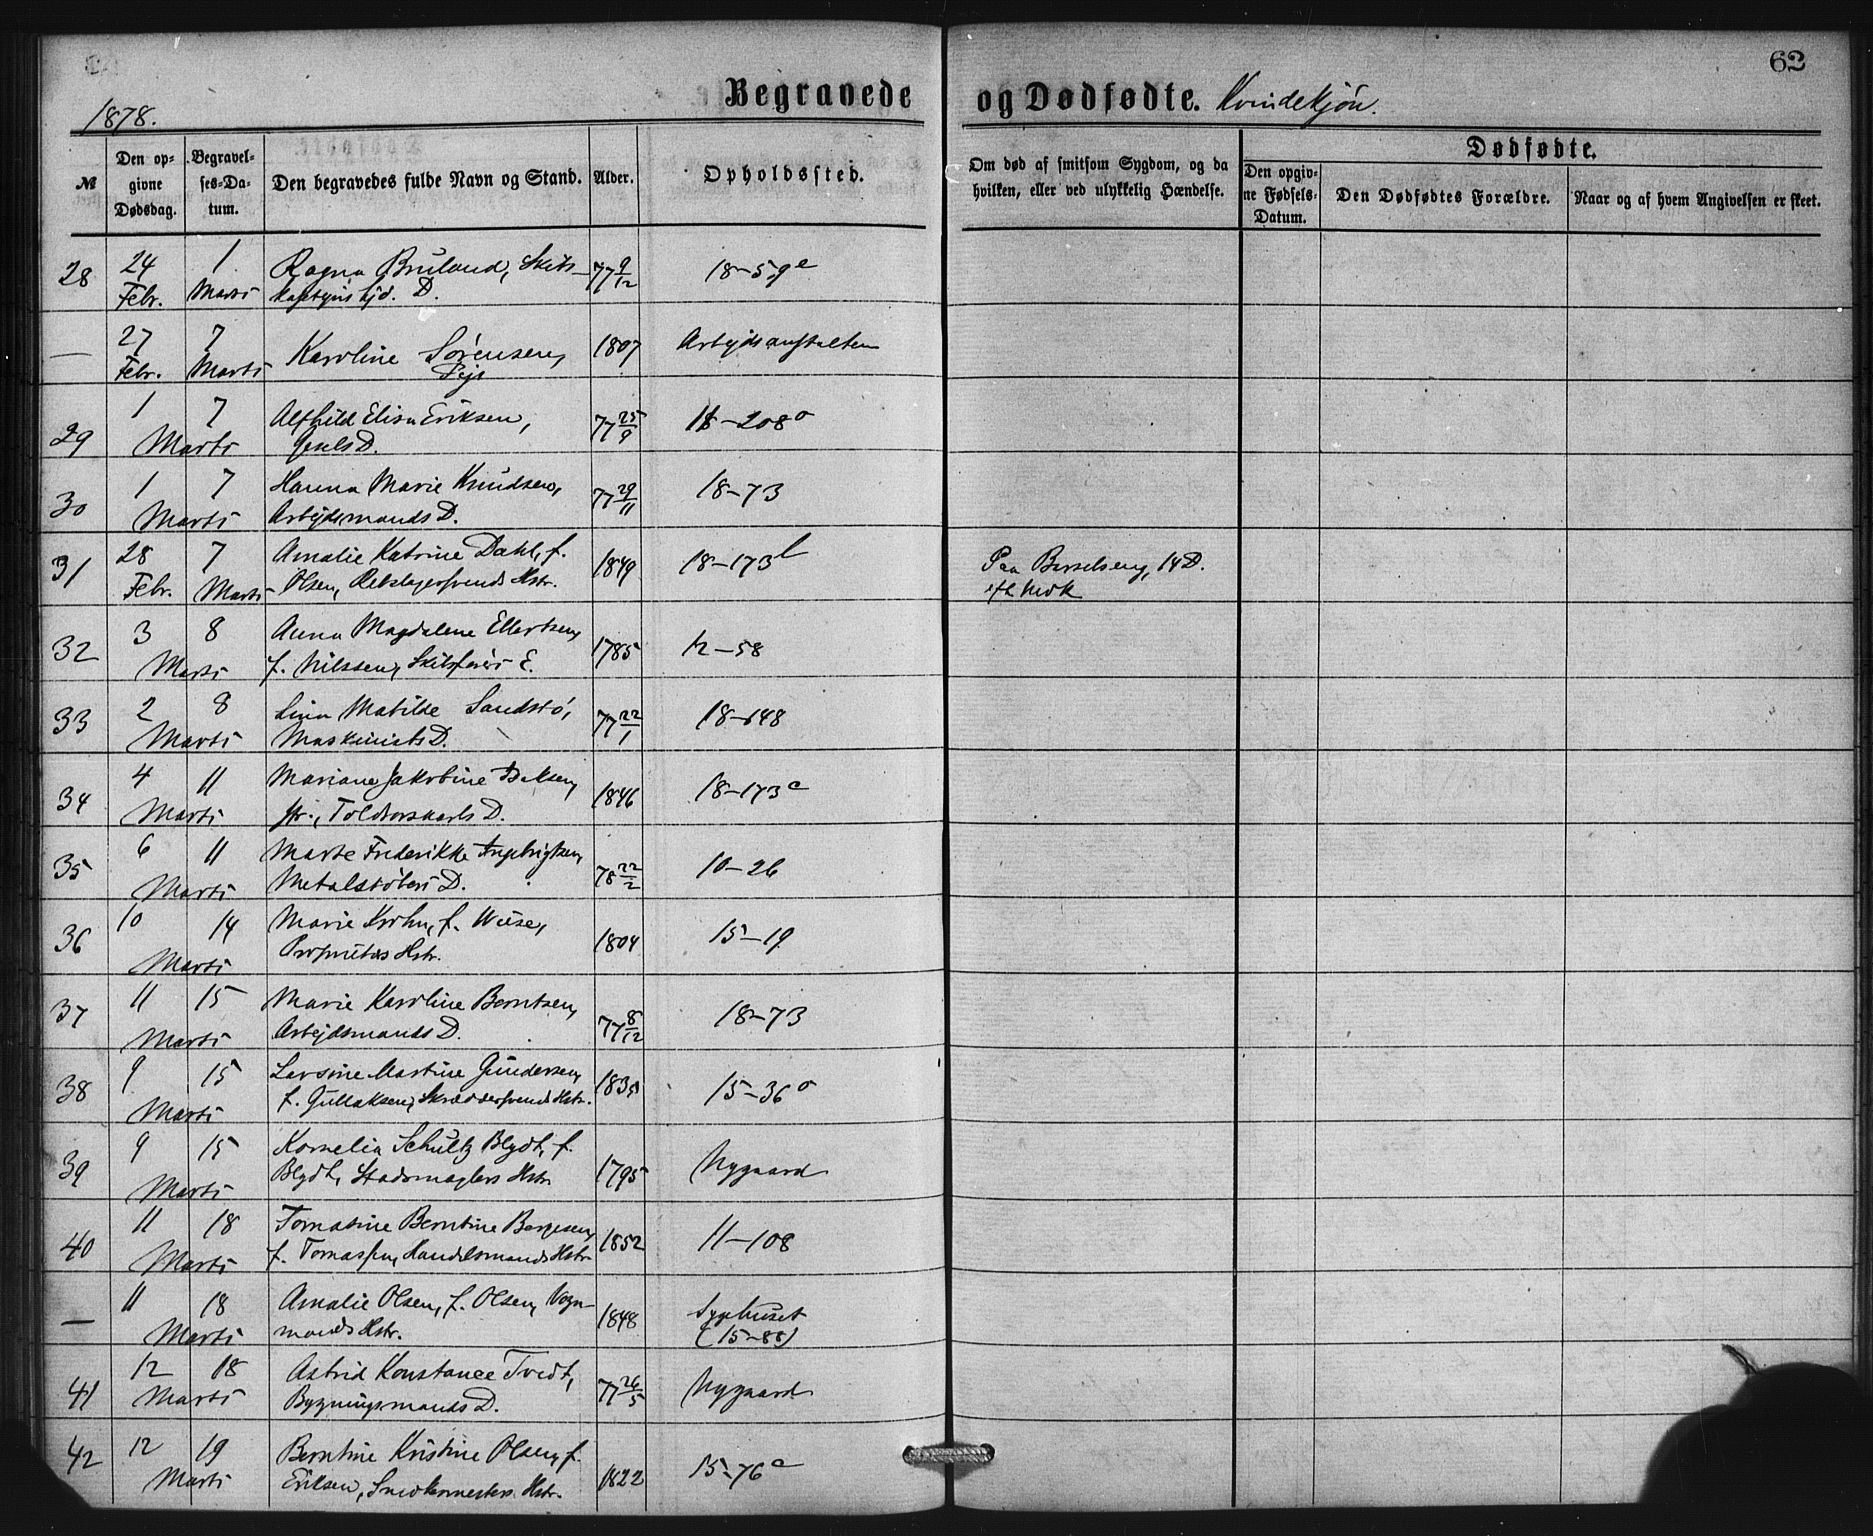 62
1878.
Begravede og Dødfødte. Kvindekjøn.
№
Den opgivne Dødsdag.
Begravelses-Datum.
Den begravedes fulde Navn og Stand.
Alder.
Opholdssted.
Om død af smitsom Sygdom, og da hvilken, eller ved ulykkelig Hændelse.
Dødfødte.
Den opgivne Fødsels-Datum.
Den Dødfødtes Forældre.
Naar og af hvem Angivelsen er skeet.
28 24 Febr. 1 Marts Ragna Bruland, Skibs-
kaptejns D. 77 9/12 18-59e
— 27 Febr. 7 Marts Karoline Sørensen,
Pige 1807 Arbejdsanstalten
29 1 7 Marts Alfhild Elisa Eriksen,
D. 77 25/9 18-208a
30 1 7 Marts Hanna Marie Knudsen,
Arbejdsmands D. 77 29/11 18-73
31 28 Febr. 7 Marts Amalie Katrine Dahl, f.
Olsen, Rebslagersvends Hstr. 1849 18-173b Paa Barselseng, 14 D.
eft. Nedk
32 3 8 Marts Anna Magdalene Ellertsen,
f. Nilssen, Skibsførers E. 1785 12-58
33 2 8 Marts Lina Matilde Sandstø,
Maskinists D. 77 22/1 18-148
34 4 11 Marts Mariane Jakobine
fr., Toldorskarls D. 1846 18-173c
35 6 11 Marts Marte Frederikke Ingebrigtsen,
Metalstøbers D. 78 22/2 10-26
36 10 14 Marts Marie Krohn, f. Wiese,
Proprietærs Hstr. 1804 15-19
37 11 15 Marts Marie Karoline Berntsen,
Arbejdsmands D. 77 8/12 18-73
38 9 15 Marts Lavsine Martine Gundersen,
f. Gullaksen, Skræddersvends Hstr. 1835 15-36a
39 9 15 Marts Kornelia Schultz Blydt, f.
Blydt, Stadsmæglers Hstr. 1795 Nygaard
40 11 18 Marts Tomasine Berntine Børgesen,
f. Tomassen, Handelsmands Hstr. 1852 11-108
— 11 18 Marts Amalie Olsen, f. Olsen, Vogn-
mands Hstr. 1848 Sygehuset
(15-88)
41 12 18 Marts Astrid Konstance Tvedt,
Bygningsmands D. 77 26/5 Nygaard
42 12 19 Marts Berntine Kristine Olsen, f.
Eriksen, Snedkermesters Hstr. 1822 15-76a